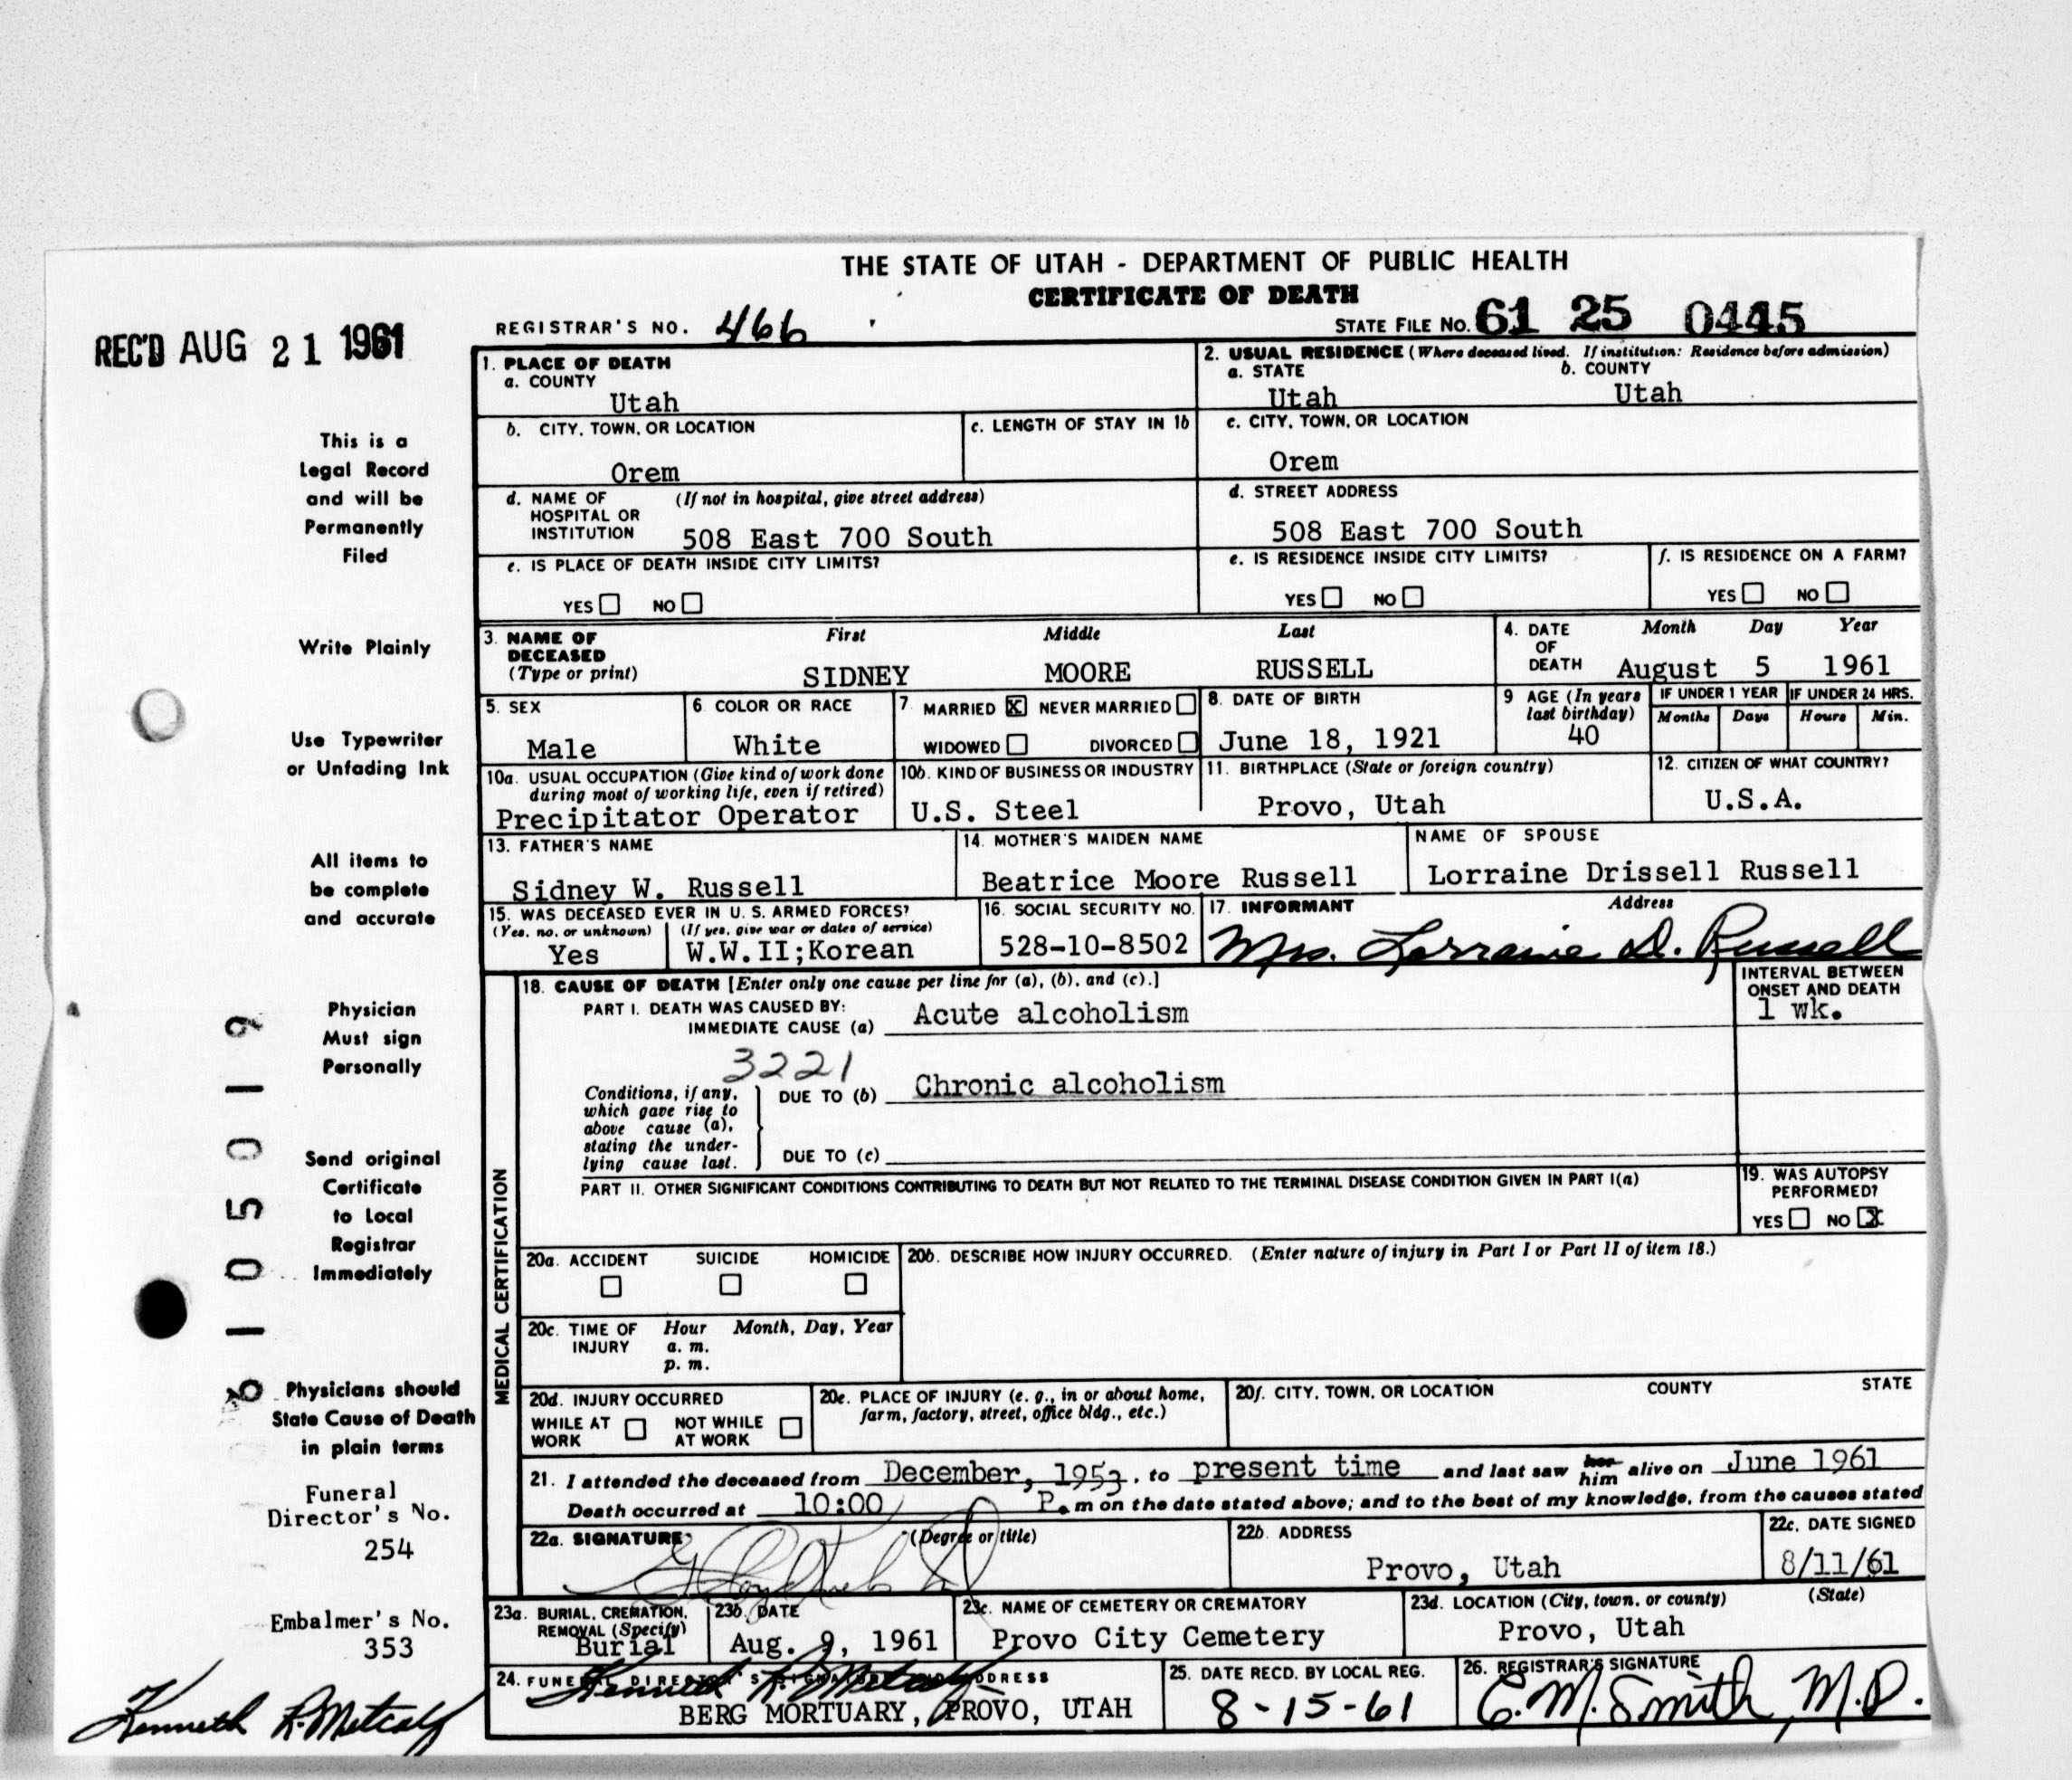 THE STATE OF UTAH - DEPARTMENT OF PUBLIC HEALTH
CERTIFICATE OF DEATH
REC'D AUG 21 1961
REGISTRAR'S NO. 466
STATE FILE No. 61 25 0445
This is a
Legal Record
and will be
Permanently
Filed
Write Plainly
Use Typewriter
or Unfading Ink
All items to
be complete
and accurate
Physician
Must sign
Personally
Send original
Certificate
to Local
Registrar
Immediately
Physicians should
State Cause of Death
in plain terms
Funeral
Director's No.
254
Embalmer's No.
353
Kenneth R. Metcalf
1. PLACE OF DEATH
a. COUNTY
Utah
2. USUAL RESIDENCE (Where deceased lived. If institution: Residence before admission)
a. STATE b. COUNTY
Utah Utah
b. CITY, TOWN, OR LOCATION
Orem
c. LENGTH OF STAY IN 1b
c. CITY, TOWN, OR LOCATION
Orem
d. NAME OF (If not in hospital, give street address)
HOSPITAL OR
INSTITUTION 508 East 700 South
d. STREET ADDRESS
508 East 700 South
e. IS PLACE OF DEATH INSIDE CITY LIMITS?
YES NO
e. IS RESIDENCE INSIDE CITY LIMITS?
YES NO
f. IS RESIDENCE ON A FARM?
YES NO
3. NAME OF First Middle Last
DECEASED
(Type or print) SIDNEY MOORE RUSSELL
4. DATE Month Day Year
OF
DEATH August 5 1961
5. SEX
Male
6 COLOR OR RACE
White
7 MARRIED X NEVER MARRIED
WIDOWED DIVORCED
8. DATE OF BIRTH
June 18, 1921
9 AGE (In years
last birthday)
40
IF UNDER 1 YEAR
Months Days
IF UNDER 24 HRS.
Hours Min.
10a. USUAL OCCUPATION (Give kind of work done
during most of working life, even if retired)
Precipitator Operator
10b. KIND OF BUSINESS OR INDUSTRY
U.S. Steel
11. BIRTHPLACE (State or foreign country)
Provo, Utah
12. CITIZEN OF WHAT COUNTRY?
U.S.A.
13. FATHER'S NAME
Sidney W. Russell
14. MOTHER'S MAIDEN NAME
Beatrice Moore Russell
NAME OF SPOUSE
Lorraine Drissell Russell
15. WAS DECEASED EVER IN U. S. ARMED FORCES?
(Yes, no, or unknown) (If yes, give war or dates of service)
Yes W.W.II;Korean
16. SOCIAL SECURITY NO.
528-10-8502
17. INFORMANT Address
Mrs. Lorraine D. Russell
MEDICAL CERTIFICATION
18. CAUSE OF DEATH [Enter only one cause per line for (a), (b), and (c).]
PART I. DEATH WAS CAUSED BY:
IMMEDIATE CAUSE (a) Acute alcoholism
INTERVAL BETWEEN
ONSET AND DEATH
1 wk.
3221
Conditions, if any,
which gave rise to
above cause (a),
stating the under-
lying cause last.
DUE TO (b) Chronic alcoholism
DUE TO (c)
PART II. OTHER SIGNIFICANT CONDITIONS CONTRIBUTING TO DEATH BUT NOT RELATED TO THE TERMINAL DISEASE CONDITION GIVEN IN PART I(a)
19. WAS AUTOPSY
PERFORMED?
YES NO X
20a. ACCIDENT SUICIDE HOMICIDE
20b. DESCRIBE HOW INJURY OCCURRED. (Enter nature of injury in Part I or Part II of item 18.)
20c. TIME OF Hour Month, Day, Year
INJURY a. m.
p. m.
20d. INJURY OCCURRED
WHILE AT NOT WHILE
WORK AT WORK
20e. PLACE OF INJURY (e. g., in or about home,
farm, factory, street, office bldg., etc.)
20f. CITY, TOWN, OR LOCATION COUNTY STATE
21. I attended the deceased from December, 1953, to present time and last saw her him alive on June 1961
Death occurred at 10:00 P.m on the date stated above; and to the best of my knowledge, from the causes stated
22a. SIGNATURE (Degree or title)
22b. ADDRESS
Provo, Utah
22c. DATE SIGNED
8/11/61
23a. BURIAL, CREMATION,
REMOVAL (Specify)
Burial
23b. DATE
Aug. 9, 1961
23c. NAME OF CEMETERY OR CREMATORY
Provo City Cemetery
23d. LOCATION (City, town, or county) (State)
Provo, Utah
24. FUNERAL DIRECTOR'S SIGNATURE AND ADDRESS
Kenneth R. Metcalf
BERG MORTUARY, PROVO, UTAH
25. DATE RECD. BY LOCAL REG.
8-15-61
26. REGISTRAR'S SIGNATURE
C. M. Smith, M.D.
6105019